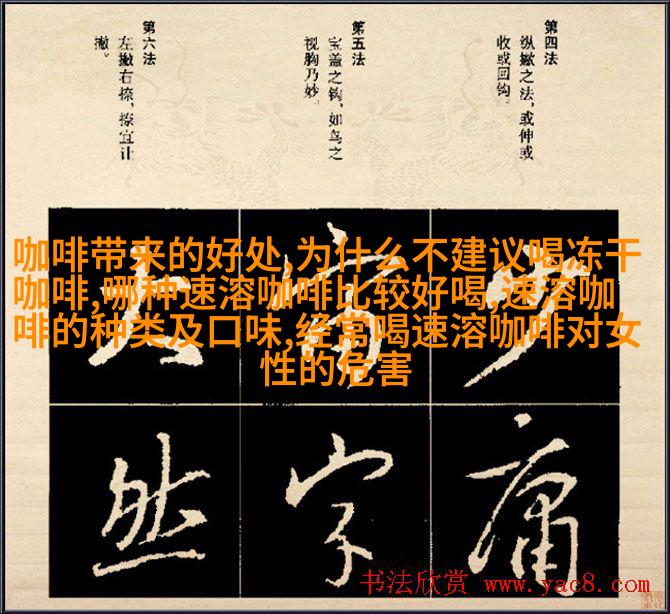 第四法
纵撇之法，或伸或
收或回钩。
第五法
宝盖之钩，如鸟之
视胸乃妙。
第六法
左撇右捺，捺宜让
撇。
咖啡带来的好处,为什么不建议喝冻干
咖啡,哪种速溶咖啡比较好喝,速溶咖
啡的种类及口味,经常喝速溶咖啡对女
性的危害
庸
字
然
书法欣赏 www.yac8.com